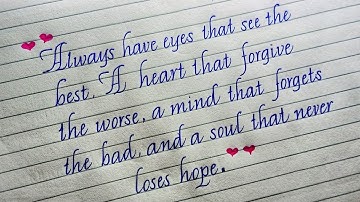 Always have eyes that see the
best. A heart that forgive
the worse, a mind that forgets
the bad, and a soul that never
loses hope.